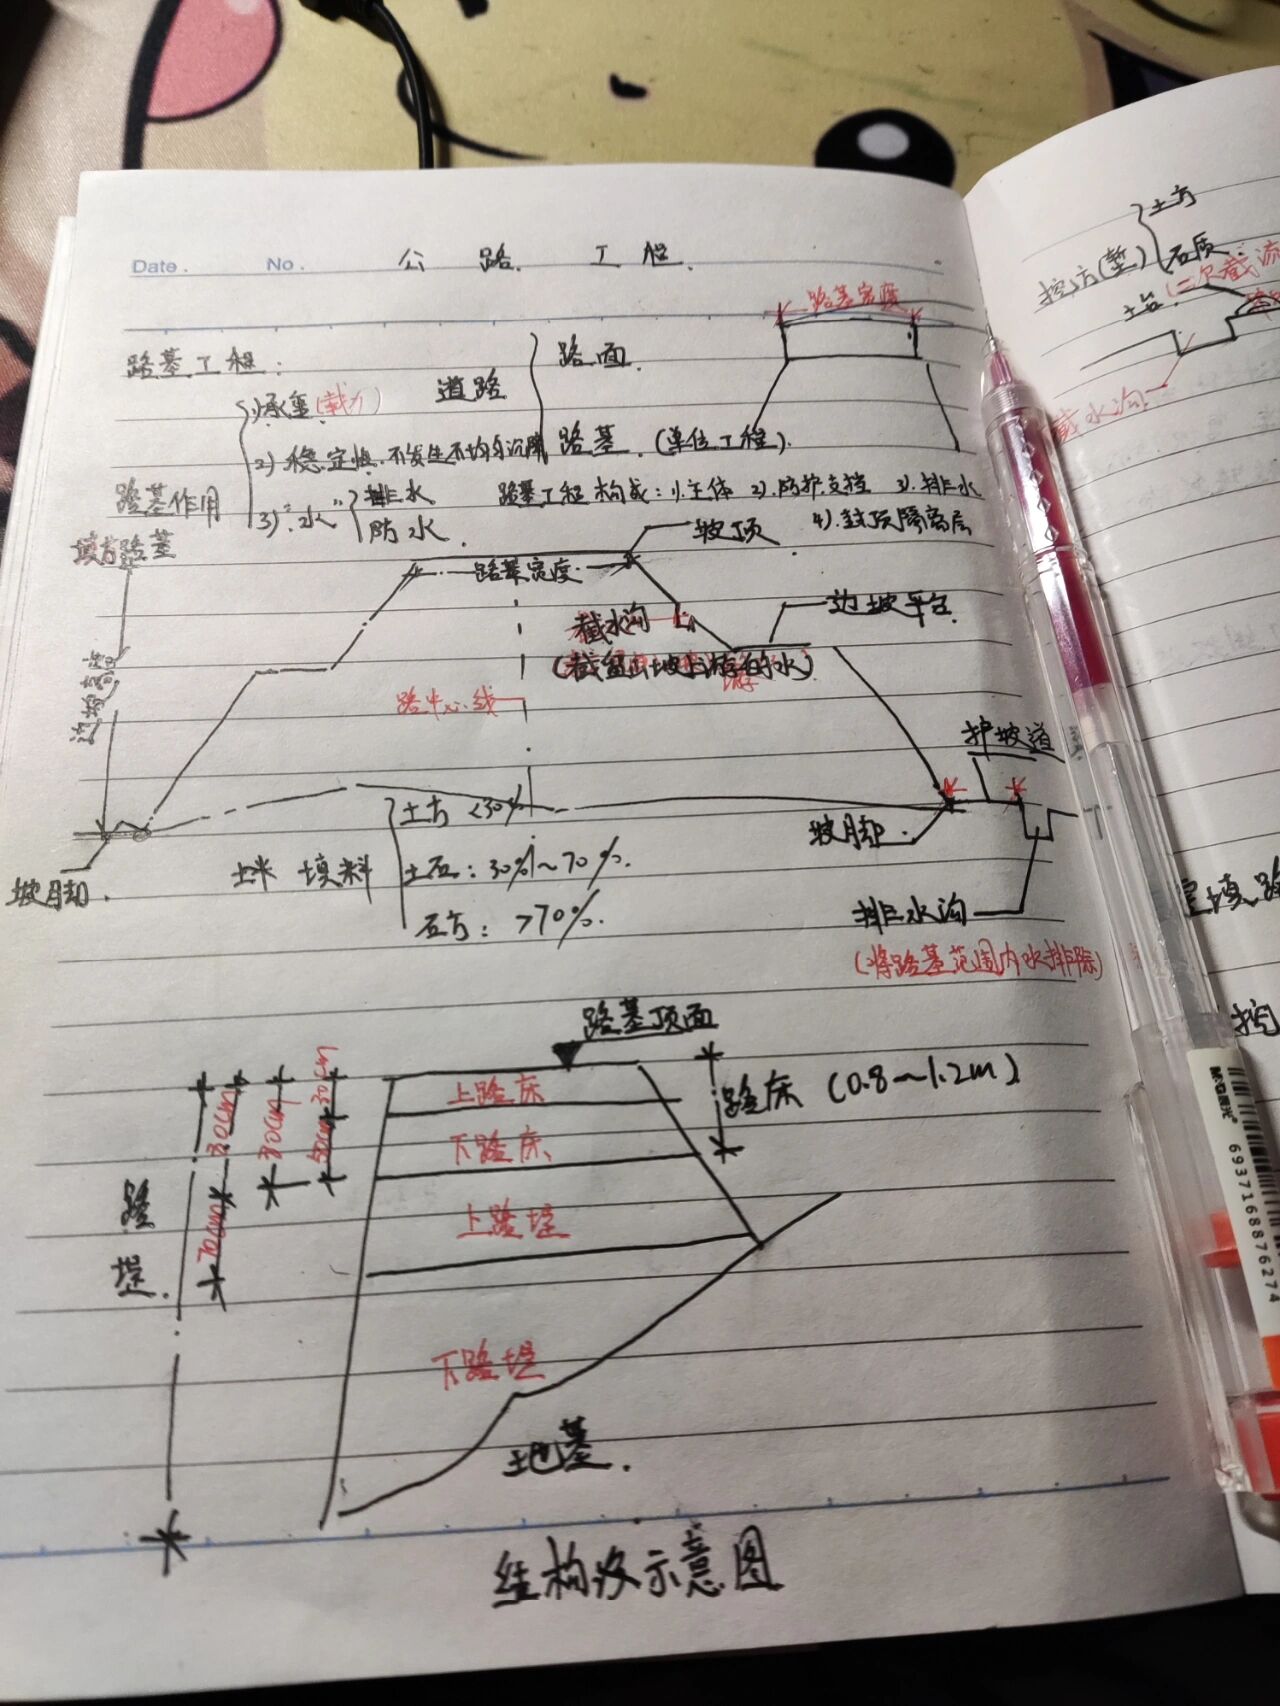 Date. No. 公路工程.
路基宽度
路基工程:
道路 路面.
路基.(单位工程).
路基作用
1)承重(载力)
2)稳定性.不发生不均匀沉降
3)"水" 排水
防水.
路基工程构成:1).主体 2).防护支挡 3).排水
4).封顶隔离层
填方路基
坡顶
路基宽度
截水沟
边坡平台
边坡高度
路中心线
护坡道
坡脚.
坡脚.
填料
土方 <30%
土石:30%~70%.
石方:>70%.
排水沟
(将路基范围内水排除)
路基顶面
上路床
下路床
路床(0.8~1.2m)
上路堤
下路堤
路堤.
80cm
70cm
80cm
30cm
50cm
地基.
结构及示意图
挖方(堑)
土方
石质
(二次截流
截水沟
M&G晨光
6937168876274